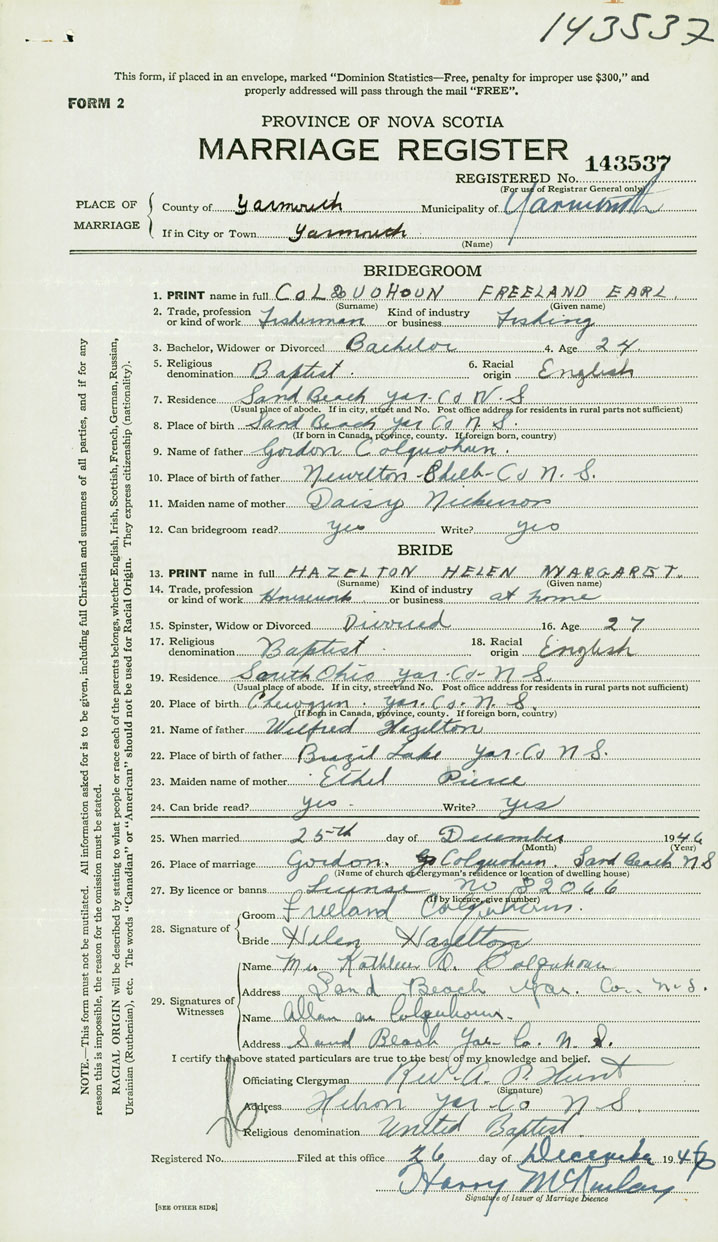 143537
This form, if placed in an envelope, marked "Dominion Statistics—Free, penalty for improper use $300," and
properly addressed will pass through the mail "FREE".
FORM 2
PROVINCE OF NOVA SCOTIA
MARRIAGE REGISTER
143537
REGISTERED No.
(For use of Registrar General only)
PLACE OF MARRIAGE
County of Yarmouth Municipality of Yarmouth
If in City or Town Yarmouth
(Name)
BRIDEGROOM
1. PRINT name in full COLQUOHOUN FREELAND EARL.
(Surname) (Given name)
2. Trade, profession or kind of work Fisherman Kind of industry or business Fishing
3. Bachelor, Widower or Divorced Bachelor 4. Age 24
5. Religious denomination Baptist. 6. Racial origin English
7. Residence Sand Beach Yar. Co N. S
(Usual place of abode. If in city, street and No. Post office address for residents in rural parts not sufficient)
8. Place of birth Sand Beach Yar Co N. S.
(If born in Canada, province, county. If foreign born, country)
9. Name of father Gordon Colquohoun.
10. Place of birth of father Newellton Shelb-Co N. S.
11. Maiden name of mother Daisy Nickerson
12. Can bridegroom read? yes Write? yes
BRIDE
13. PRINT name in full HAZELTON HELEN MARGARET.
(Surname) (Given name)
14. Trade, profession or kind of work Housework Kind of industry or business at home
15. Spinster, Widow or Divorced Divorced 16. Age 27
17. Religious denomination Baptist 18. Racial origin English
19. Residence South Ohio Yar. Co- N S.
(Usual place of abode. If in city, street and No. Post office address for residents in rural parts not sufficient)
20. Place of birth Yar. Co. N. S.
(If born in Canada, province, county. If foreign born, country)
21. Name of father Wilfred Hazelton
22. Place of birth of father Brazil Lake Yar. Co N S.
23. Maiden name of mother Ethel Pierce
24. Can bride read? yes - Write? yes
25. When married 25th day of December 1946
(Month) (Year)
26. Place of marriage Gordon. Colquohoun. Sand Beach N S
(Name of church or clergyman's residence or location of dwelling house)
27. By licence or banns License no 82066
(If by licence, give number)
28. Signature of
Groom Freeland Colquhoun.
Bride Helen Hazelton
29. Signatures of Witnesses
Name Mrs Kathleen O. Colquhoun
Address Sand Beach Yar. Co. N. S.
Name Allan Colquhoun.
Address Sand Beach Yar. Co. N. S.
I certify the above stated particulars are true to the best of my knowledge and belief.
Officiating Clergyman Rev. A. P. Hunt
(Signature)
Address Hebron Yar-Co N S.
Religious denomination United Baptist.
Registered No. Filed at this office 26 day of December 1946
Harry McKinlay
Signature of Issuer of Marriage Licence
[SEE OTHER SIDE]
NOTE.—This form must not be mutilated. All information asked for is to be given, including full Christian and surnames of all parties, and if for any
reason this is impossible, the reason for the omission must be stated.
RACIAL ORIGIN will be described by stating to what people or race each of the parents belongs, whether English, Irish, Scottish, French, German, Russian,
Ukrainian (Ruthenian), etc. The words "Canadian" or "American" should not be used for Racial Origin. They express citizenship (nationality).